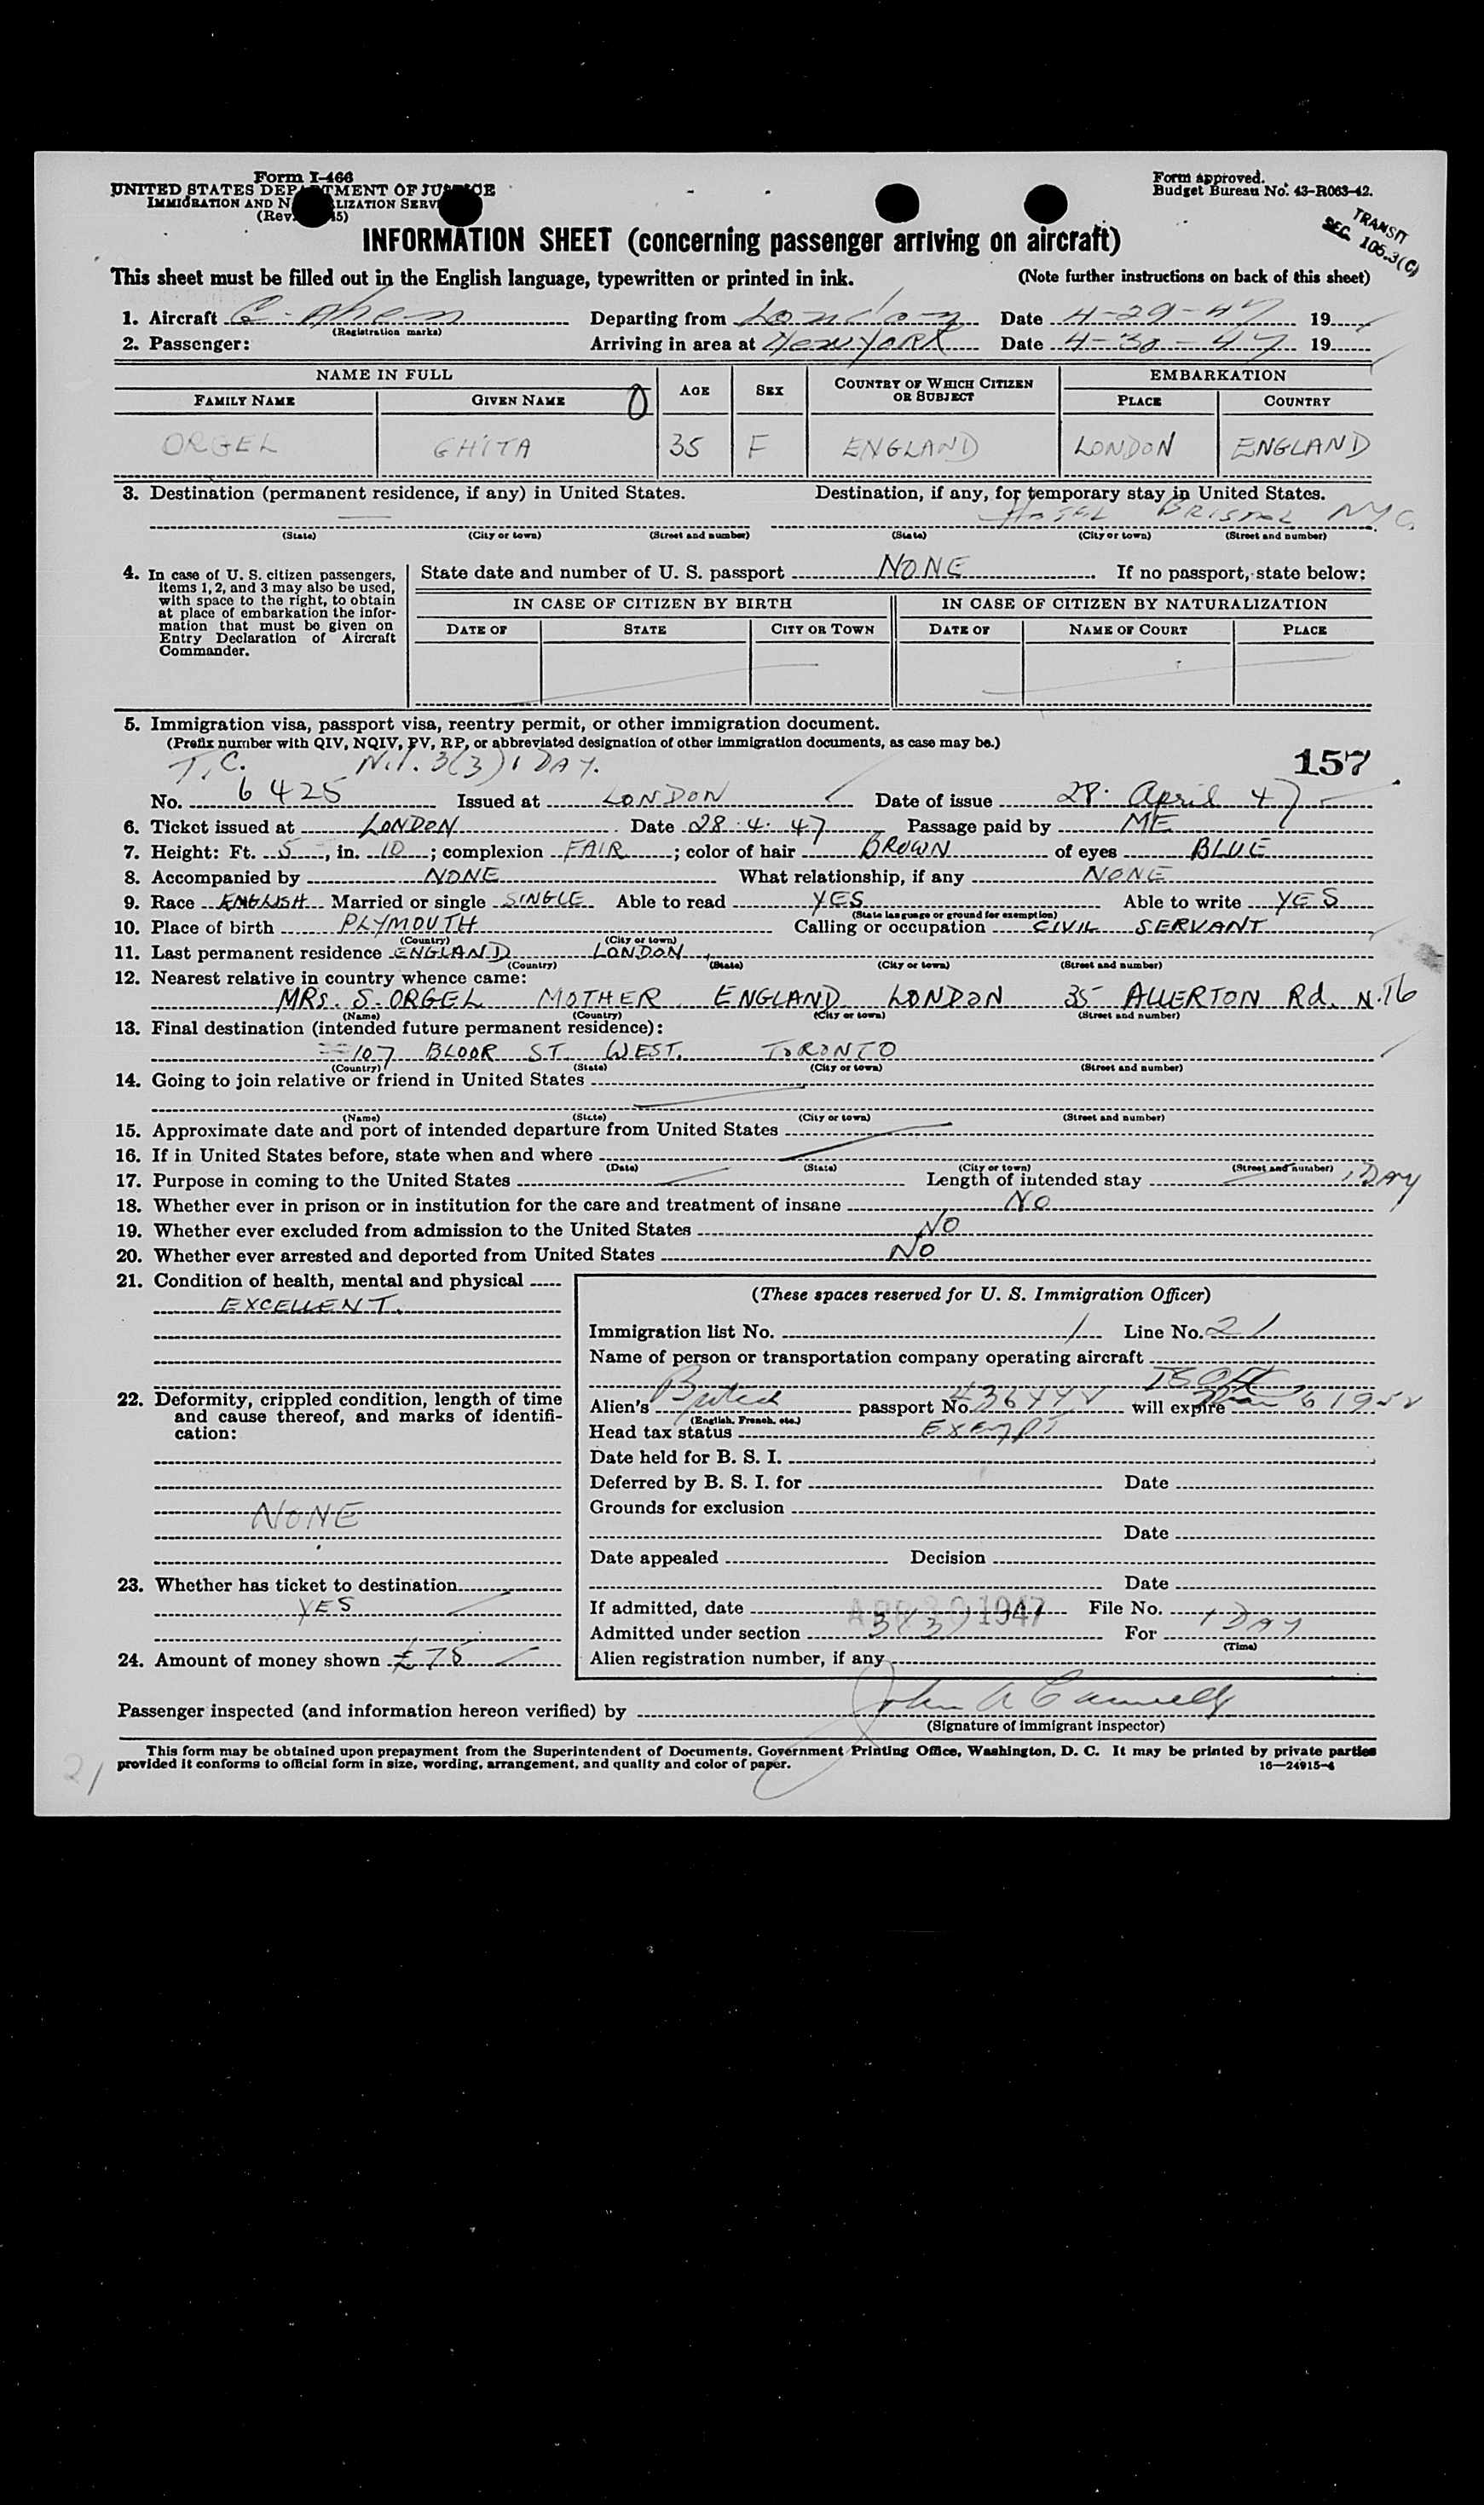 Form I-466
UNITED STATES DEPARTMENT OF JUSTICE
IMMIGRATION AND NATURALIZATION SERVICE
(Rev. 5)
Form approved.
Budget Bureau No. 43-R063-42.
TRANSIT
SEC. 106.3(C)
INFORMATION SHEET (concerning passenger arriving on aircraft)
This sheet must be filled out in the English language, typewritten or printed in ink. (Note further instructions on back of this sheet)
1. Aircraft G-Ahen Departing from London Date 4-29-47 19
(Registration marks)
2. Passenger: Arriving in area at New York Date 4-30-47 19
NAME IN FULL AGE SEX COUNTRY OF WHICH CITIZEN OR SUBJECT EMBARKATION
FAMILY NAME GIVEN NAME PLACE COUNTRY
ORGEL GHITA 35 F ENGLAND LONDON ENGLAND
3. Destination (permanent residence, if any) in United States. Destination, if any, for temporary stay in United States.
HOTEL BRISTOL N.Y.C.
(State) (City or town) (Street and number) (State) (City or town) (Street and number)
4. In case of U. S. citizen passengers, items 1, 2, and 3 may also be used, with space to the right, to obtain at place of embarkation the information that must be given on Entry Declaration of Aircraft Commander.
State date and number of U. S. passport NONE If no passport, state below:
IN CASE OF CITIZEN BY BIRTH IN CASE OF CITIZEN BY NATURALIZATION
DATE OF STATE CITY OR TOWN DATE OF NAME OF COURT PLACE
5. Immigration visa, passport visa, reentry permit, or other immigration document.
(Prefix number with QIV, NQIV, PV, RP, or abbreviated designation of other immigration documents, as case may be.)
T.C. N.I. 3(3) 1 DAY. 157
No. 6425 Issued at LONDON Date of issue 28. April 47
6. Ticket issued at LONDON Date 28.4.47 Passage paid by ME
7. Height: Ft. 5, in. 10; complexion FAIR; color of hair BROWN of eyes BLUE
8. Accompanied by NONE What relationship, if any NONE
9. Race ENGLISH Married or single SINGLE Able to read YES Able to write YES
(State language or ground for exemption)
10. Place of birth PLYMOUTH Calling or occupation CIVIL SERVANT
(Country) (City or town)
11. Last permanent residence ENGLAND LONDON
(Country) (State) (City or town) (Street and number)
12. Nearest relative in country whence came:
MRS. S. ORGEL MOTHER ENGLAND LONDON 35 ALLERTON Rd. N.16
(Name) (Country) (City or town) (Street and number)
13. Final destination (intended future permanent residence):
107 BLOOR ST. WEST. TORONTO
(Country) (State) (City or town) (Street and number)
14. Going to join relative or friend in United States
(Name) (State) (City or town) (Street and number)
15. Approximate date and port of intended departure from United States
16. If in United States before, state when and where
(Date) (State) (City or town) (Street and number)
17. Purpose in coming to the United States Length of intended stay 1 DAY
18. Whether ever in prison or in institution for the care and treatment of insane NO
19. Whether ever excluded from admission to the United States NO
20. Whether ever arrested and deported from United States NO
21. Condition of health, mental and physical
EXCELLENT.
22. Deformity, crippled condition, length of time and cause thereof, and marks of identification:
NONE
23. Whether has ticket to destination
YES
24. Amount of money shown £75
(These spaces reserved for U. S. Immigration Officer)
Immigration list No. 1 Line No. 21
Name of person or transportation company operating aircraft
Alien's British passport No. will expire
(English, French, etc.)
Head tax status Exempt
Date held for B. S. I.
Deferred by B. S. I. for Date
Grounds for exclusion
Date
Date appealed Decision
Date
If admitted, date APR 30 1947 File No.
Admitted under section 3(3) For 1 Day
(Time)
Alien registration number, if any
Passenger inspected (and information hereon verified) by John A
(Signature of immigrant inspector)
This form may be obtained upon prepayment from the Superintendent of Documents, Government Printing Office, Washington, D. C. It may be printed by private parties
provided it conforms to official form in size, wording, arrangement, and quality and color of paper. 16—24915-4
21